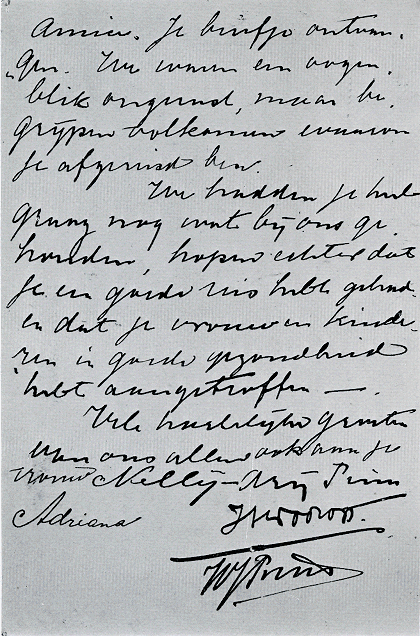 Annie. Je briefje ontvan-
gen. We waren een oogen-
blik ongerust, maar be-
grijpen volkomen waarom
je afgereisd ben.
We hadden je heel
graag nog wat bij ons ge-
houden, hopen echter dat
je een goede reis hebt gehad
en dat je vrouw en kinde-
ren in goede gezondheid
hebt aangetroffen —.
Vele hartelijke groeten
van ons allen ook aan je
vrouw Nelly - Prins
Adriana
WJPrins